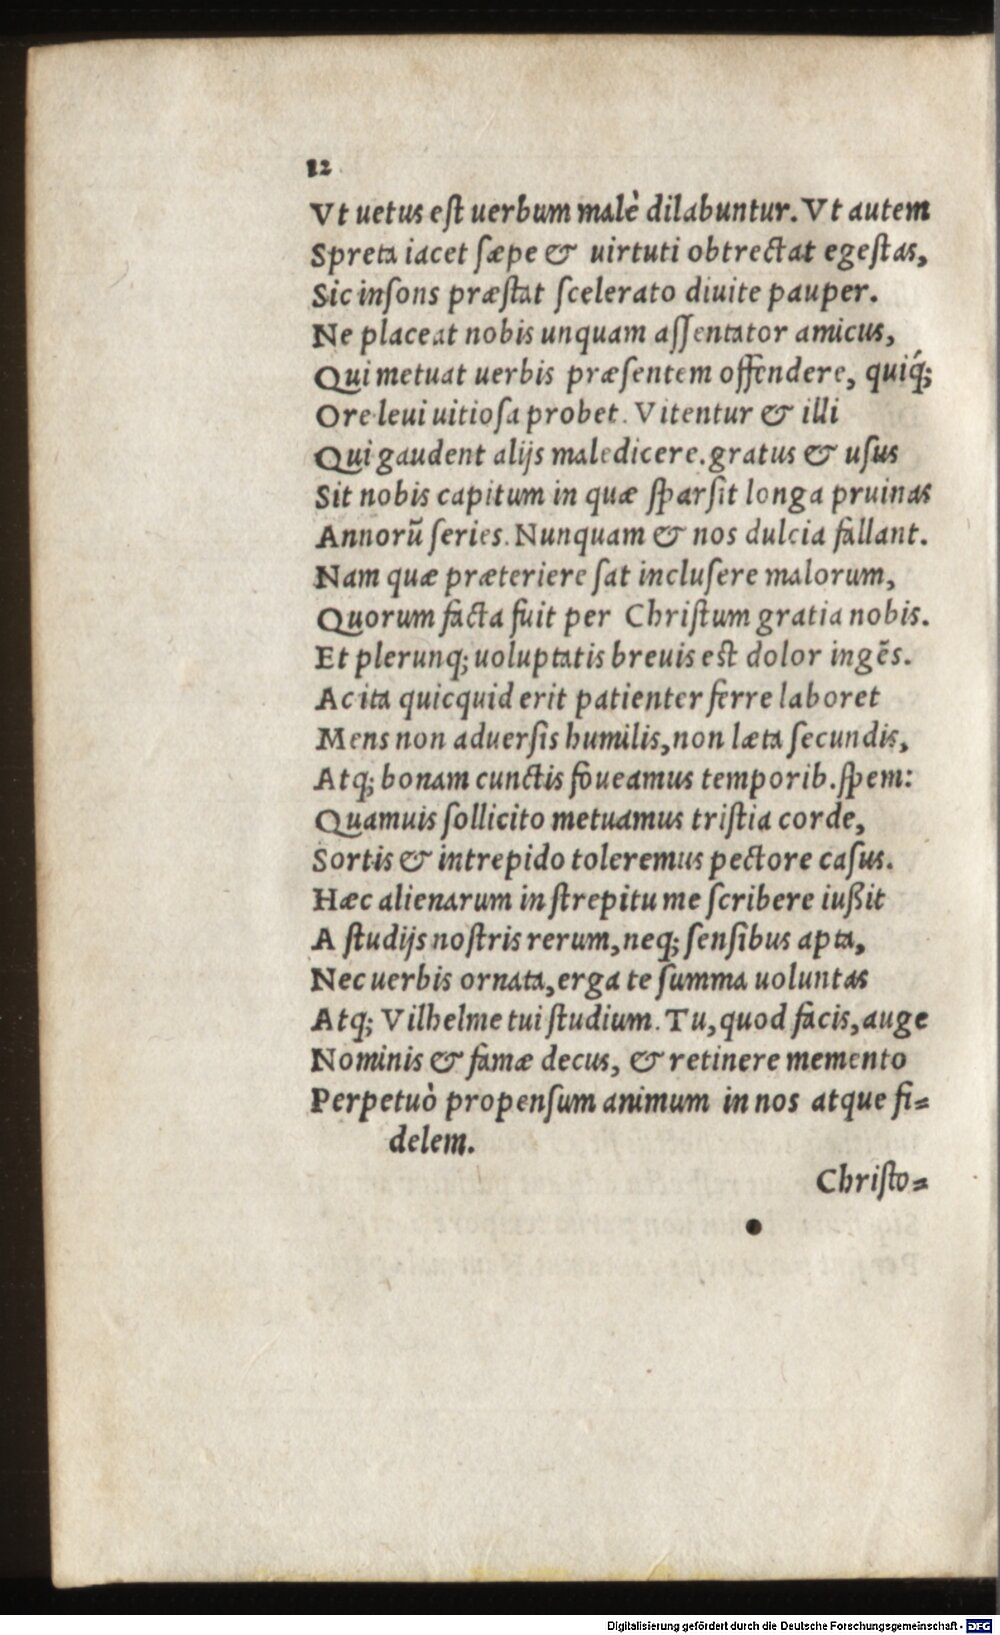 12
Vt uetus eſt uerbum malè dilabuntur. Vt autem
Spreta iacet ſæpe & uirtuti obtrectat egeſtas,
Sic inſons præſtat ſcelerato diuite pauper.
Ne placeat nobis unquam aſſentator amicus,
Qui metuat uerbis præſentem offendere, quiq́;
Ore leui uitioſa probet. Vitentur & illi
Qui gaudent alijs maledicere. gratus & uſus
Sit nobis capitum in quæ ſparſit longa pruinas
Annorũ ſeries. Nunquam & nos dulcia fallant.
Nam quæ præteriere ſat incluſere malorum,
Quorum facta fuit per Chriſtum gratia nobis.
Et plerunq; uoluptatis breuis eſt dolor ingẽs.
Ac ita quicquid erit patienter ferre laboret
Mens non aduerſis humilis, non læta ſecundis,
Atq; bonam cunctis foueamus temporib. ſpem:
Quamuis ſollicito metuamus triſtia corde,
Sortis & intrepido toleremus pectore caſus.
Hæc alienarum in ſtrepitu me ſcribere iußit
A ſtudijs noſtris rerum, neq; ſenſibus apta,
Nec uerbis ornata, erga te ſumma uoluntas
Atq; Vilhelme tui ſtudium. Tu, quod facis, auge
Nominis & famæ decus, & retinere memento
Perpetuò propenſum animum in nos atque fi=
delem.
Chriſto=
Digitalisierung gefördert durch die Deutsche Forschungsgemeinschaft - DFG